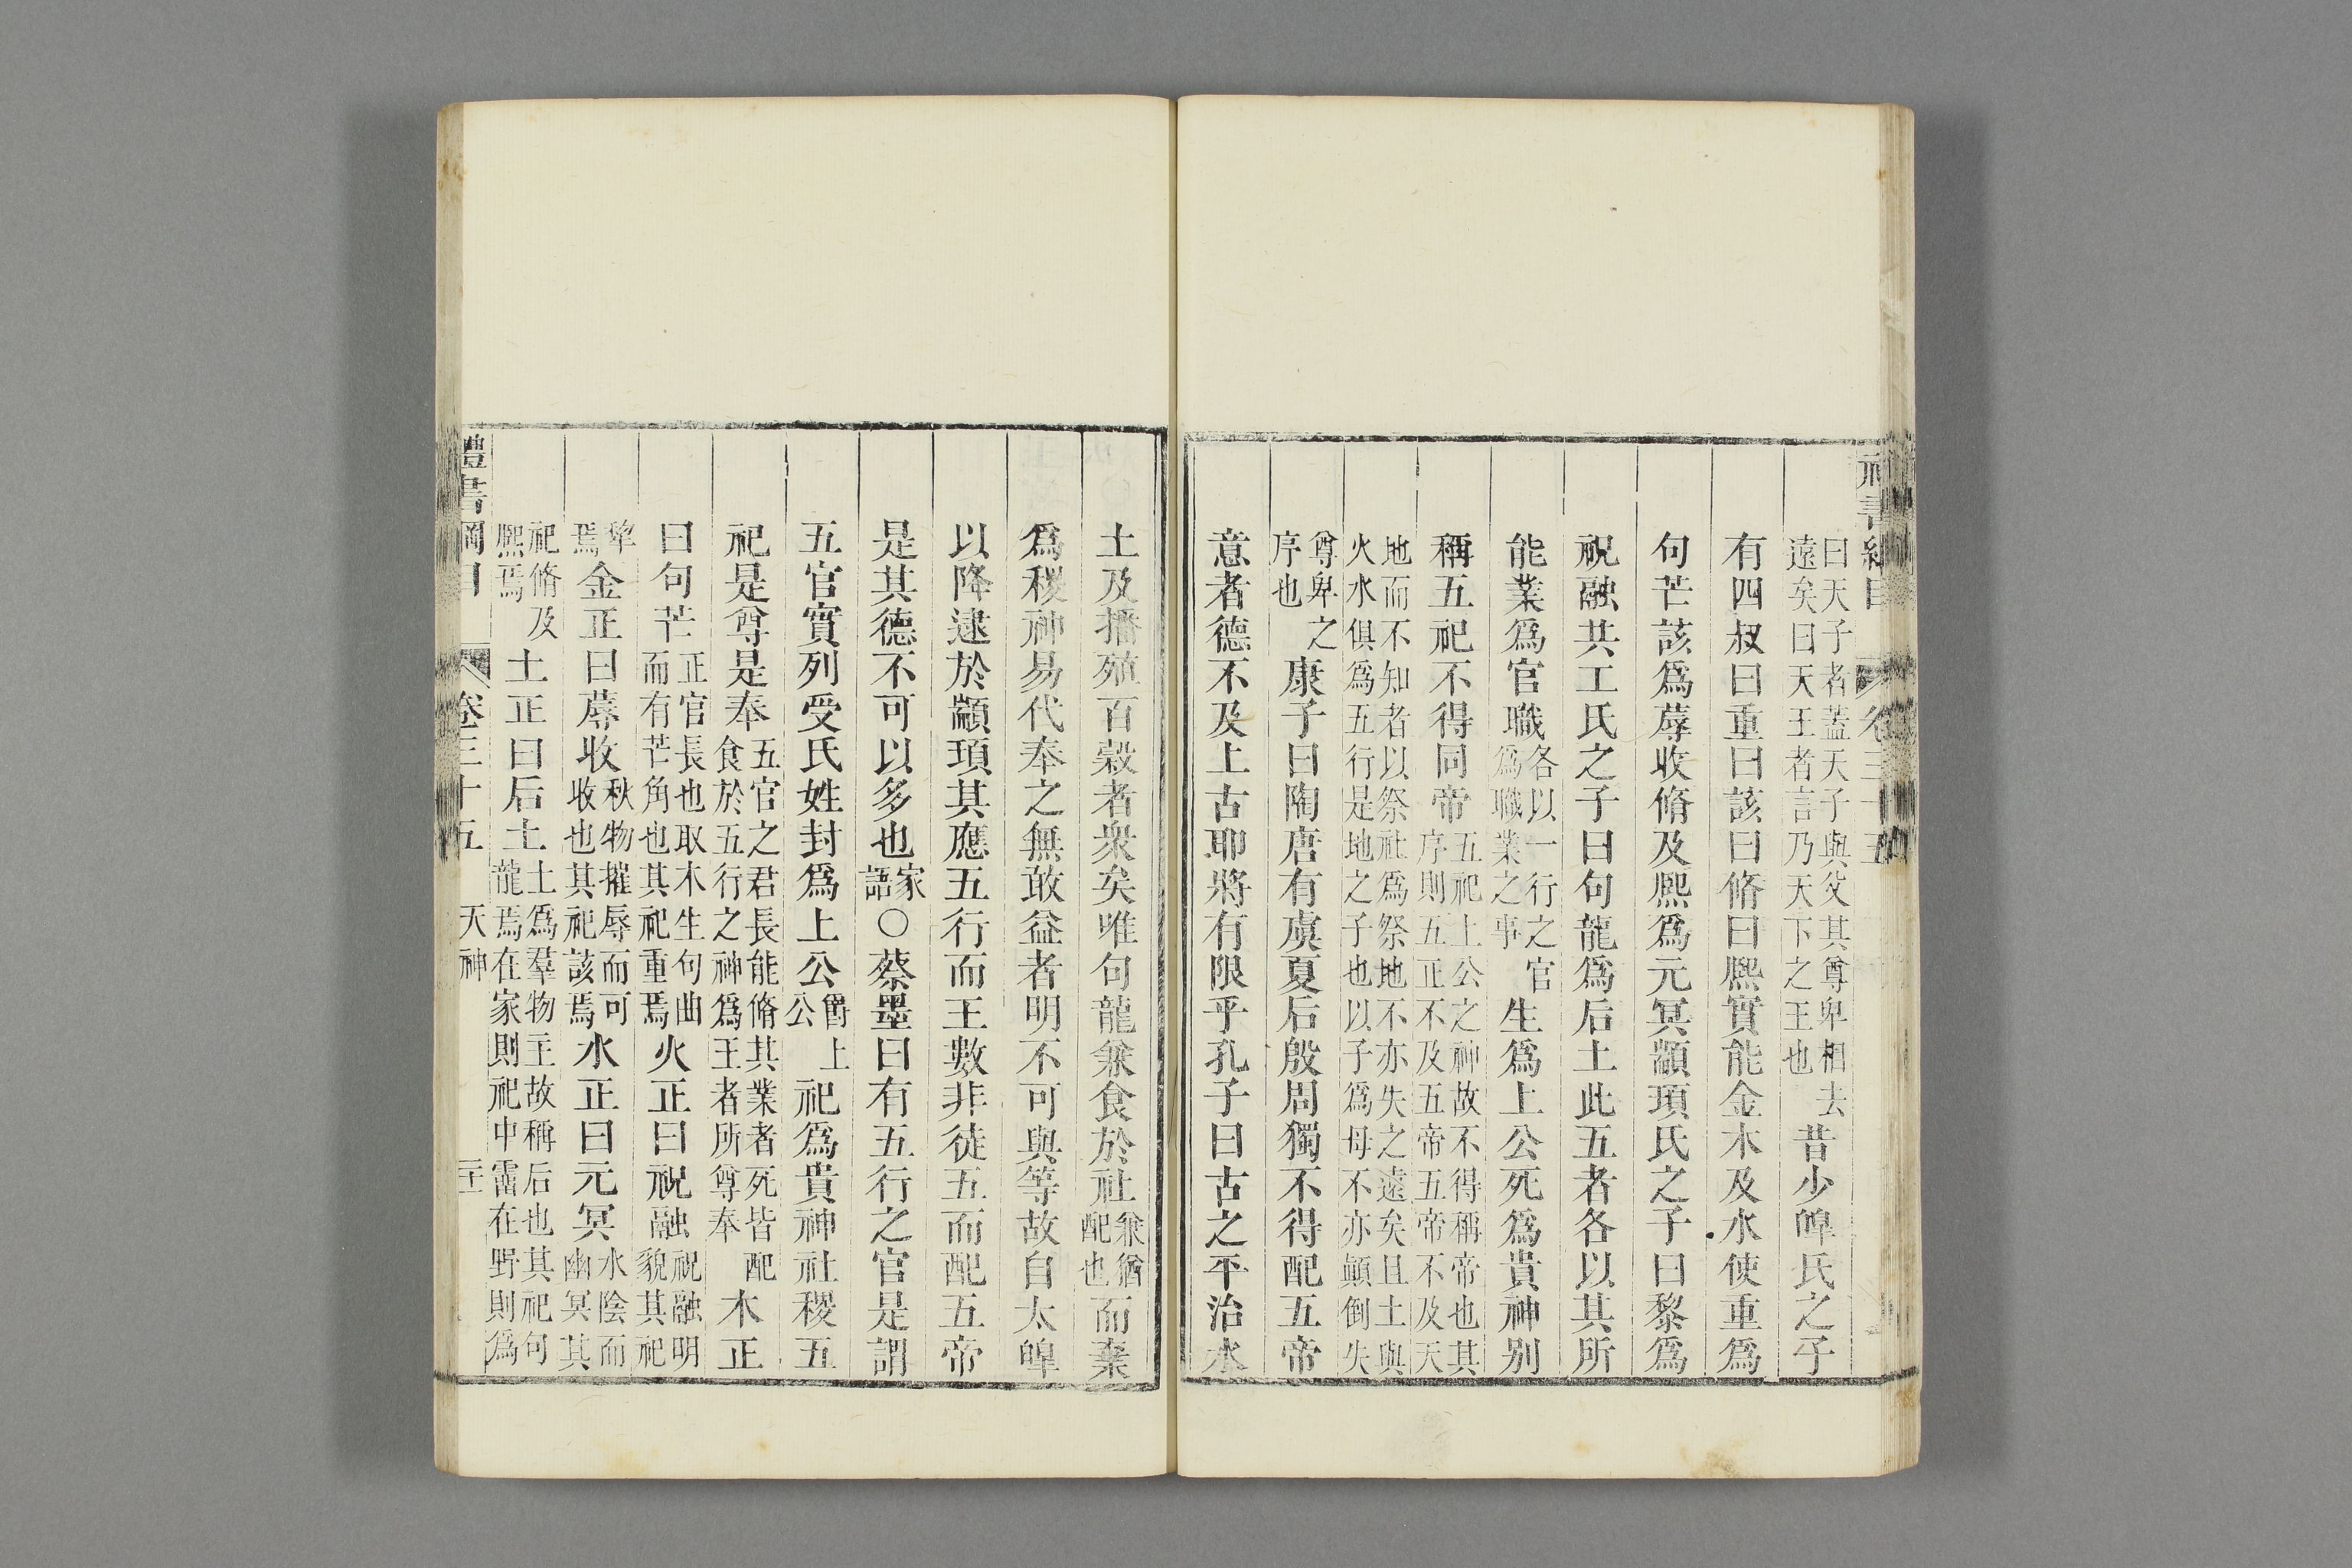 曰天子者蓋天子與父其尊卑相去
遠矣曰天王者言乃天下之王也
昔少皥氏之子
有四叔曰重曰該曰脩曰熈實能金木及水使重爲
句芒該爲蓐收脩及熈爲元冥顓頊氏之子曰黎爲
祝融共工氏之子曰句龍爲后土此五者各以其所
能業爲官職
各以一行之官
爲職業之事
生爲上公死爲貴神別
稱五祀不得同帝
五祀上公之神故不得稱帝也其
序則五正不及五帝五帝不及天
地而不知者以祭社爲祭地不亦失之遠矣且土與
火水俱爲五行是地之子也以子爲母不亦顚倒失
尊卑之
序也
康子曰陶唐有虞夏后殷周獨不得配五帝
意者德不及上古耶將有限乎孔子曰古之平治水
土及播殖百穀者衆矣唯句龍兼食於社
兼猶
配也
而棄
爲稷神易代奉之無敢益者明不可與等故自太皥
以降逮於顓頊其應五行而王數非徒五而配五帝
是其德不可以多也
家
語
○蔡墨曰有五行之官是謂
五官實列受氏姓封爲上公
爵上
公
祀爲貴神社稷五
祀是尊是奉
五官之君長能脩其業者死皆配
食於五行之神爲王者所尊奉
木正
曰句芒
正官長也取木生句曲
而有芒角也其祀重焉
火正曰祝融
祝融明
貌其祀
犂
焉
金正曰蓐收
秋物摧辱而可
收也其祀該焉
水正曰元冥
水陰而
幽冥其
祀脩及
熈焉
土正曰后土
土爲羣物主故稱后也其祀句
龍焉在家則祀中霤在野則爲
禮書綱目 卷三十五 天神